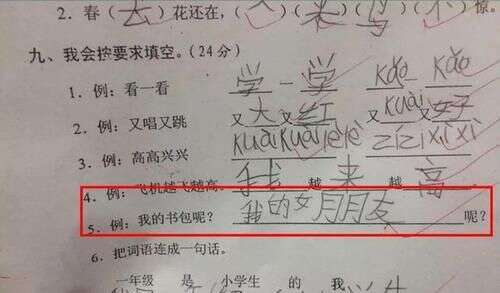 2. 春（去）花还在，（人）来鸟（不）惊。
九、我会按要求填空。(24分)
1. 例：看一看 学一学 kǎo一kǎo
2. 例：又唱又跳 又大又红 又kuài又好
3. 例：高高兴兴 kuàikuàilèlè
4. 例：飞机越飞越高。 越来越高
5. 例：我的书包呢？ 我的女月月友呢？
6. 把词语连成一句话。
一年级 是 小学生 的 我